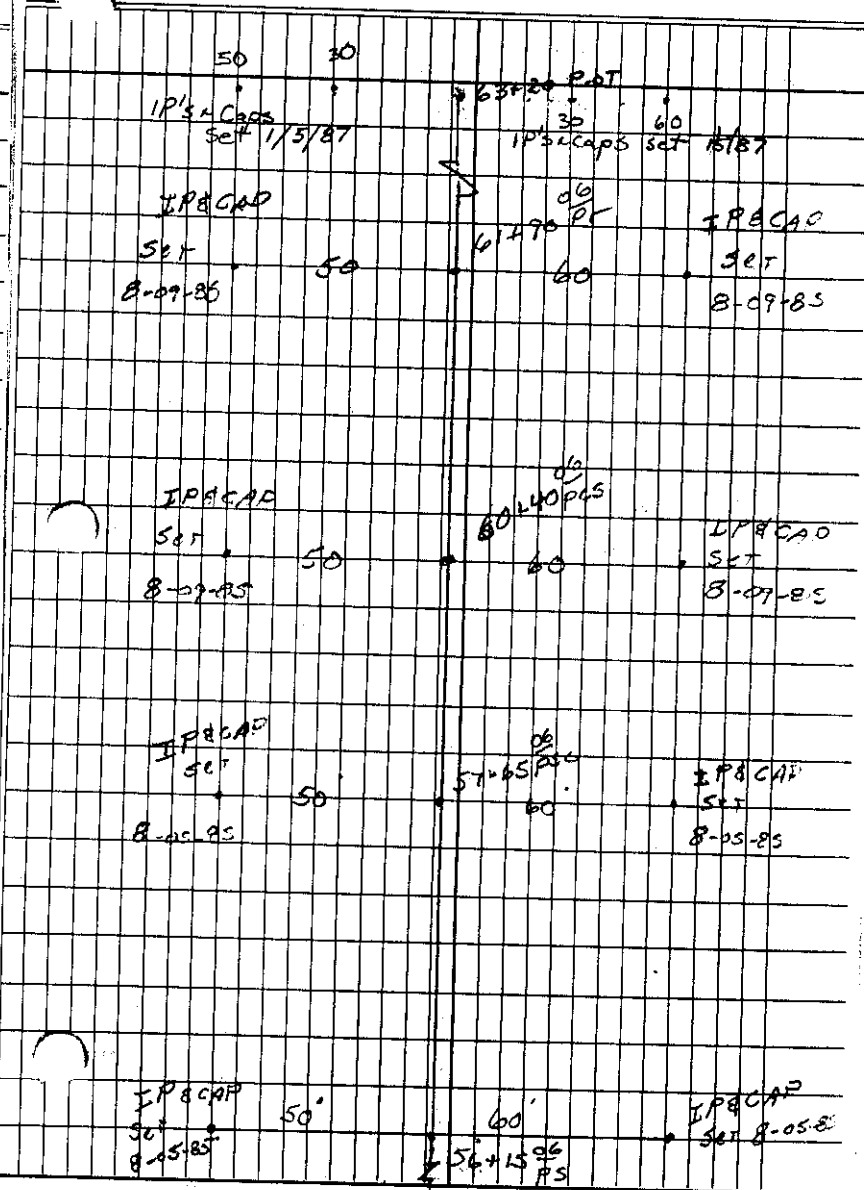 50 30
63+20 P.O.T
IP's & Caps
Set 1/5/87
30 60
IP's & Caps Set 1/5/87
IP & CAP
Set
8-09-85
50
06
61+90 PT
60
IP & CAP
Set
8-09-85
IP & CAP
Set
8-09-85
50
06
60+40 PCS
60
IP & CAP
Set
8-09-85
IP & CAP
Set
8-05-85
50
06
57+65 PSC
60
IP & CAP
Set
8-05-85
IP & CAP
Set
8-05-85
50'
60'
56+15 06
PS
IP & CAP
Set 8-05-8